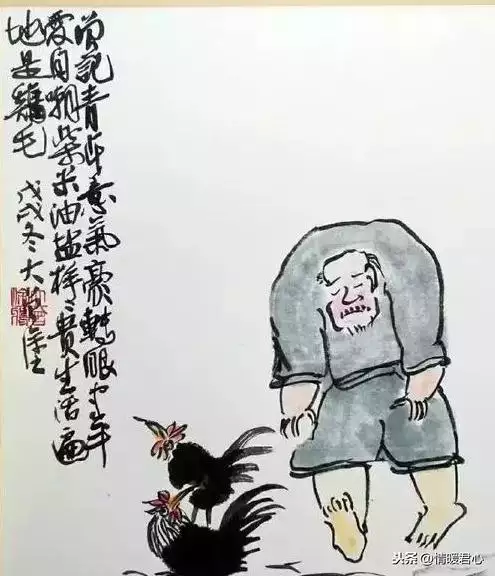 曾記青年意氣豪轉眼中年
愛自嘲柴米油盐样々貴生活遍
地是鷄毛
戊戌冬大
头条 @情暖君心